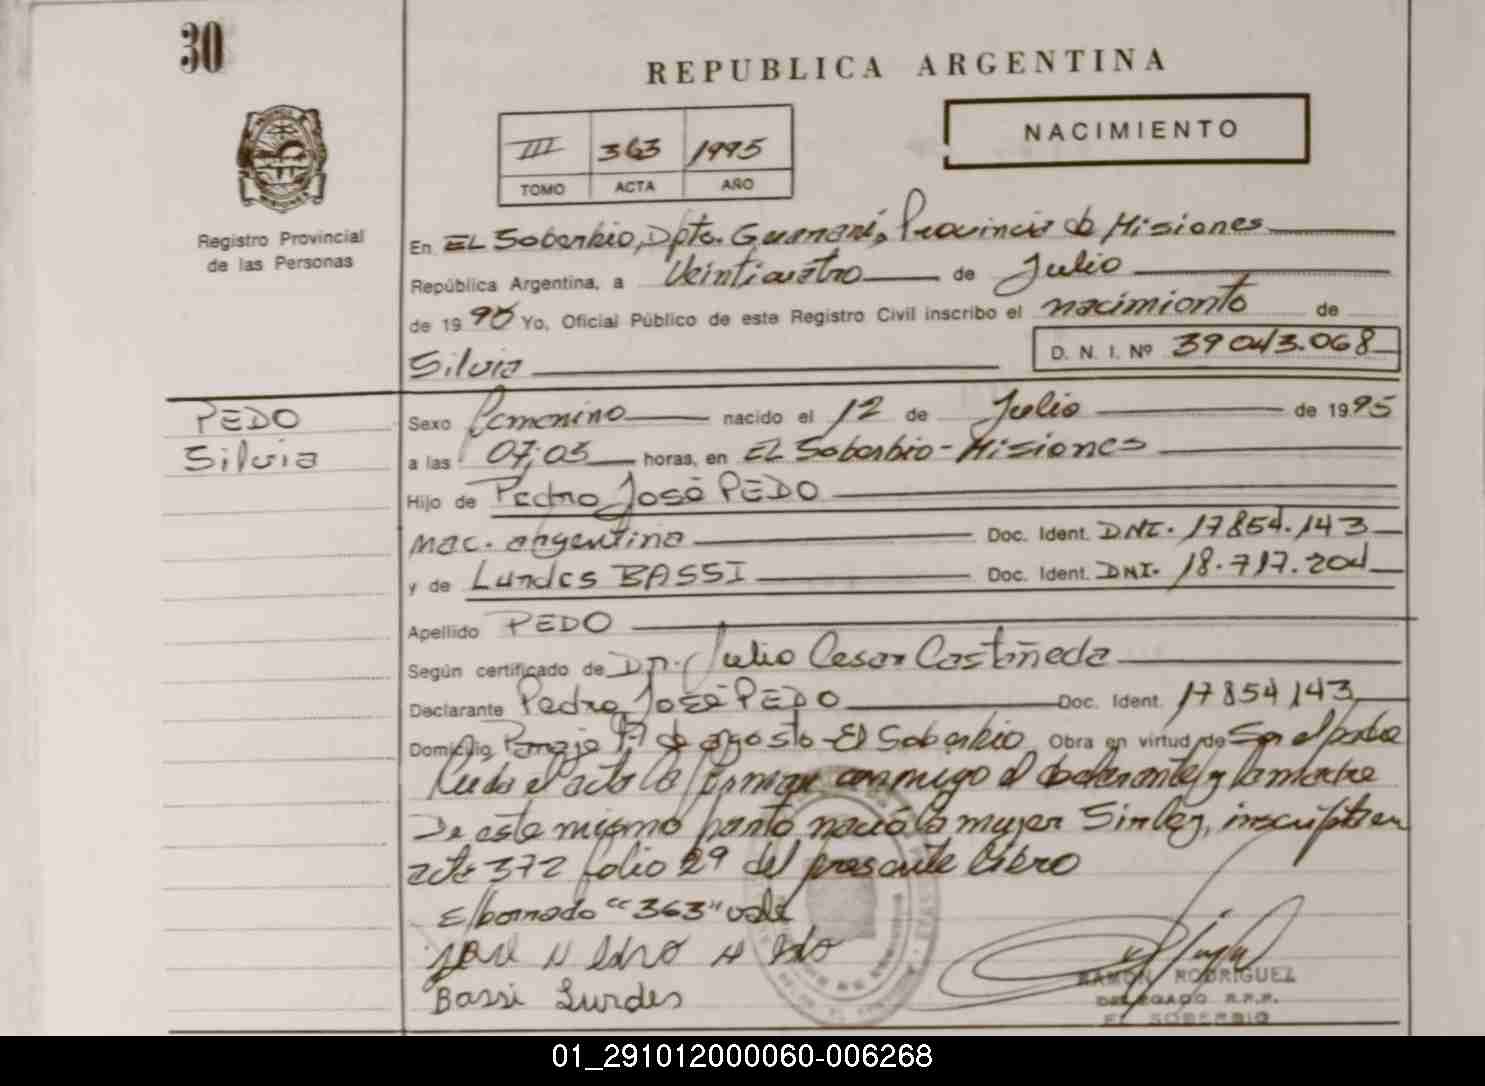 30
REPUBLICA ARGENTINA
III 363 1995
TOMO ACTA AÑO
NACIMIENTO
Registro Provincial
de las Personas
En EL Soberbio, Dpto. Guaraní, Provincia de Misiones
República Argentina, a Veinticuatro de Julio
de 1995 Yo, Oficial Público de este Registro Civil inscribo el nacimiento de
Silvia D. N. I. Nº 39.043.068
PEDO
Silvia
Sexo femenino nacido el 12 de Julio de 1995
a las 07:05 horas, en EL Soberbio - Misiones
Hijo de Pedro José PEDO
nac. argentina Doc. Ident. DNI. 17854.143
y de Lurdes BASSI Doc. Ident. DNI. 18.717.204
Apellido PEDO
Según certificado de Dr. Julio Cesar Castañeda
Declarante Pedro José PEDO Doc. Ident. 17854143
Domicilio Paraje 17 de agosto - El Soberbio Obra en virtud de Ser el padre
Leida el acta la firman conmigo el declarante y la madre
De este mismo parto nació la mujer Sirley, inscripta en
acta 372 folio 29 del presente libro
El borrado "363" vale
Bassi Lurdes
RAMON RODRIGUEZ
DELEGADO R.P.P.
EL SOBERBIO
01_291012000060-006268